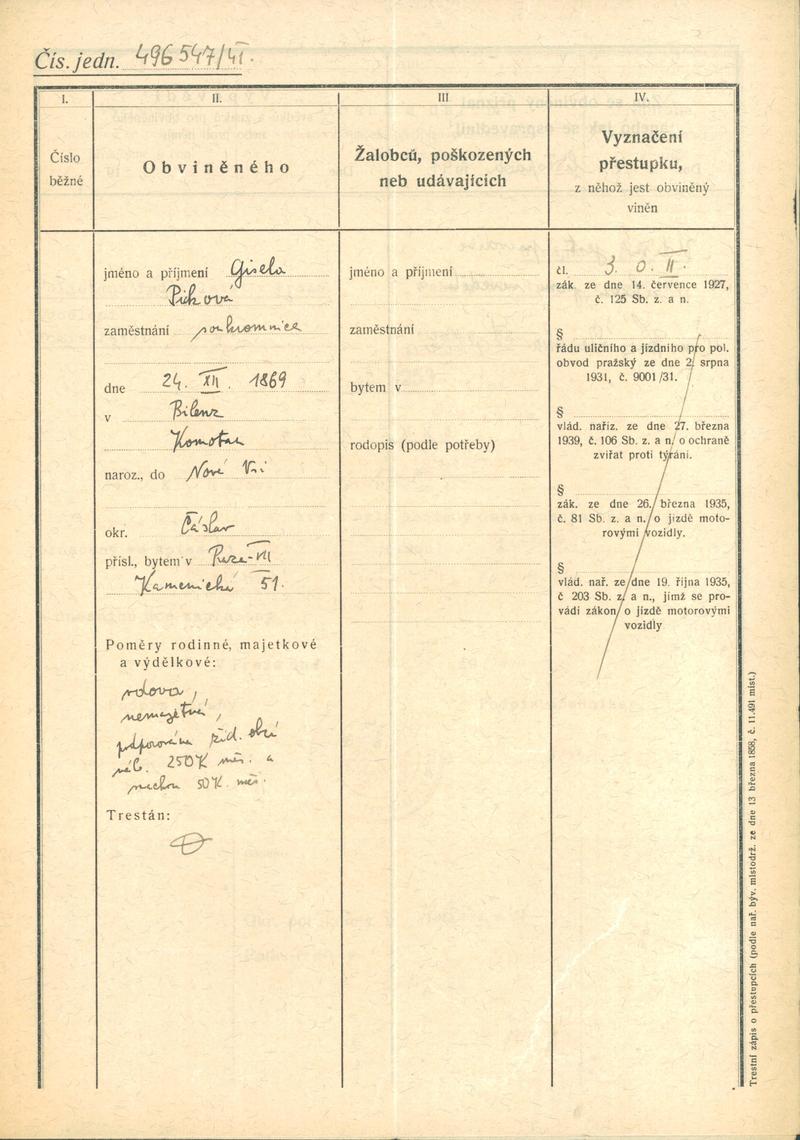 Čís. jedn. 496547/VI.
I.
Číslo
běžné
II.
Obviněného
III
Žalobců, poškozených
neb udávajících
IV.
Vyznačení
přestupku,
z něhož jest obviněný
viněn
jméno a příjmení Gisela
Picková
zaměstnání soukromnice
dne 24. XII. 1869
v Bilenz
Komotau
naroz., do Nové Vsi
okr. Čáslav
přísl., bytem v Praze-VII
Kamenická 51.
Poměry rodinné, majetkové
a výdělkové:
vdova,
nemajetná,
podporována žid. obcí
250 K měs. a
50 K. měs.
Trestán:
jméno a příjmení
zaměstnání
bytem v
rodopis (podle potřeby)
čl. 3. O. II.
zák. ze dne 14. července 1927,
č. 125 Sb. z. a n.
§
řádu uličního a jízdního pro pol.
obvod pražský ze dne 2. srpna
1931, č. 9001/31.
§
vlád. naříz. ze dne 27. března
1939, č. 106 Sb. z. a n. o ochraně
zvířat proti týrání.
§
zák. ze dne 26. března 1935,
č. 81 Sb. z. a n. o jízdě moto-
rovými vozidly.
§
vlád. nař. ze dne 19. října 1935,
č 203 Sb. z. a n., jímž se pro-
vádí zákon o jízdě motorovými
vozidly
Trestní zápis o přestupcích (podle nař. býv. místodrž. ze dne 13 března 1858, č. 11.491 míst.)